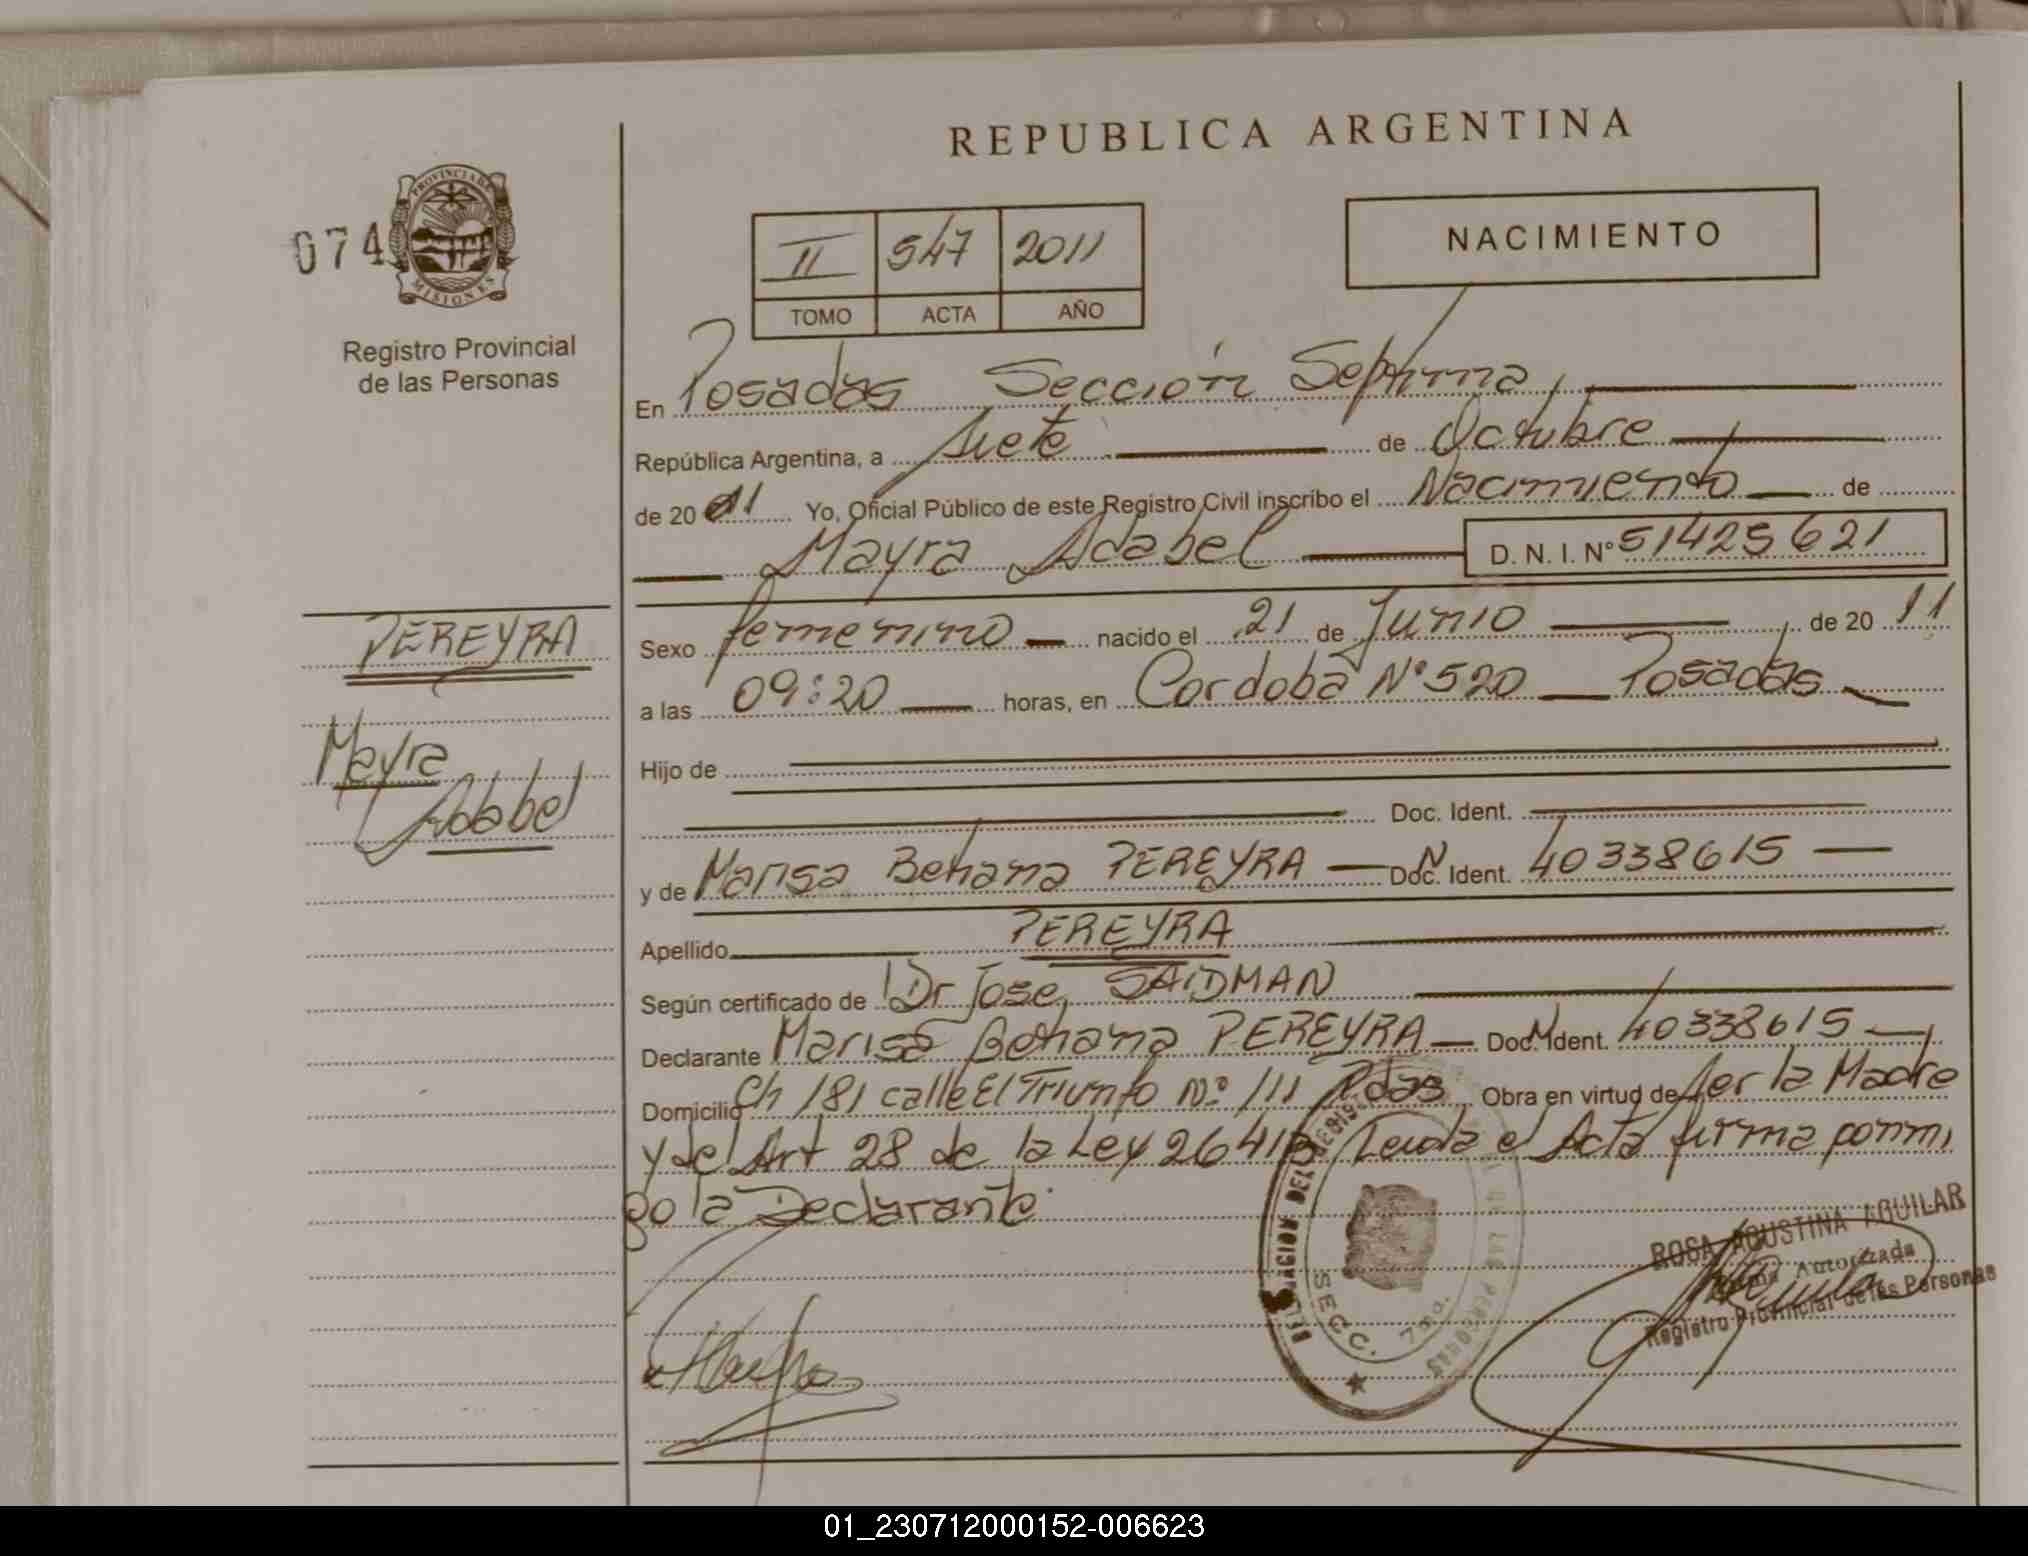 REPUBLICA ARGENTINA
074
PROVINCIA DE
MISIONES
Registro Provincial
de las Personas
II 547 2011
TOMO ACTA AÑO
NACIMIENTO
En Posadas Sección Septima,
República Argentina, a Siete de Octubre
de 20 11 Yo, Oficial Público de este Registro Civil inscribo el Nacimiento de
Mayra Adabel D. N. I. Nº 51425621
PEREYRA
Mayra
Adabel
Sexo femenino nacido el 21 de Junio de 20 11
a las 09:20 horas, en Cordoba Nº 520 Posadas
Hijo de
Doc. Ident.
y de Marisa Betiana PEREYRA Doc. Ident. 40338615
Apellido PEREYRA
Según certificado de Dr Jose SAIDMAN
Declarante Marisa Betiana PEREYRA Doc. Ident. 40338615
Domicilio Ch 181 calle El Triunfo Nº 111 Pdas Obra en virtud de Ser la Madre
y del Art 28 de la Ley 26413 Leida el Acta firma conmi
go la Declarante.
SECC. 7ma.
ROSA AGUSTINA AGUILAR
Firma Autorizada
Registro Provincial de las Personas
01_230712000152-006623